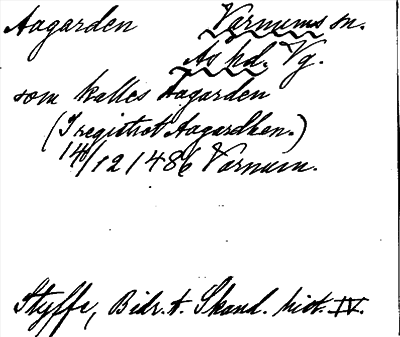 Aagarden Varnums sn.
Ås hd. Vg.
som kalles Aagarden
(I registret Aagardhen.)
14/12 1486 Varnum.
Styffe, Bidr. t. Skand. hist. IV.